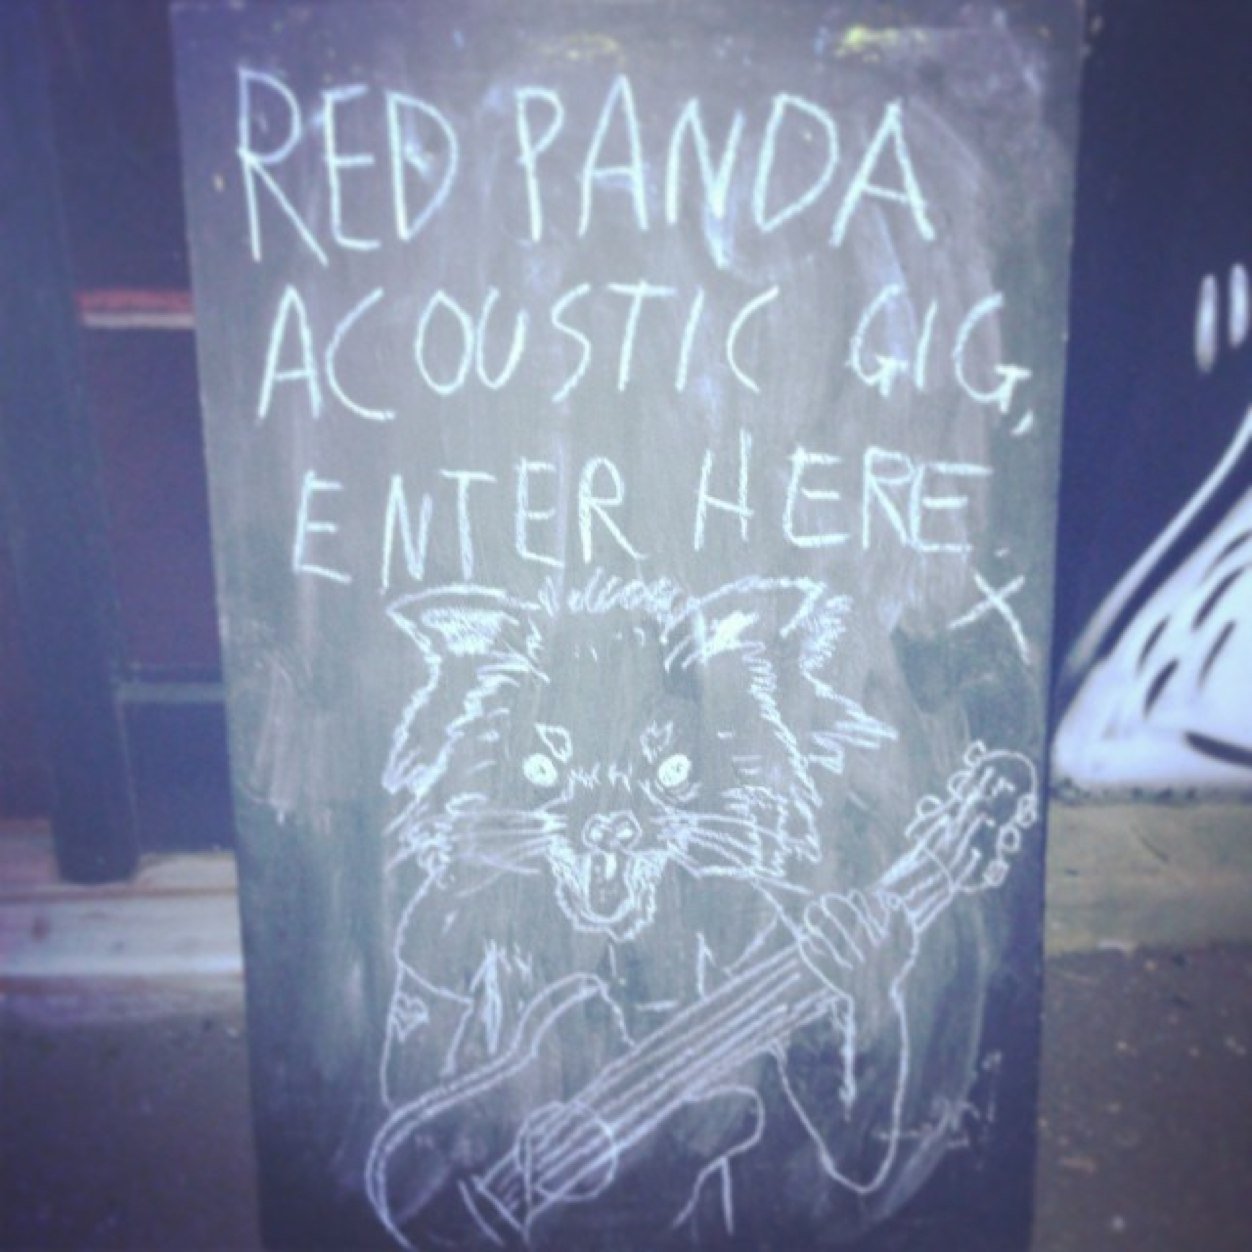 RED PANDA
ACOUSTIC GIG,
ENTER HERE
X